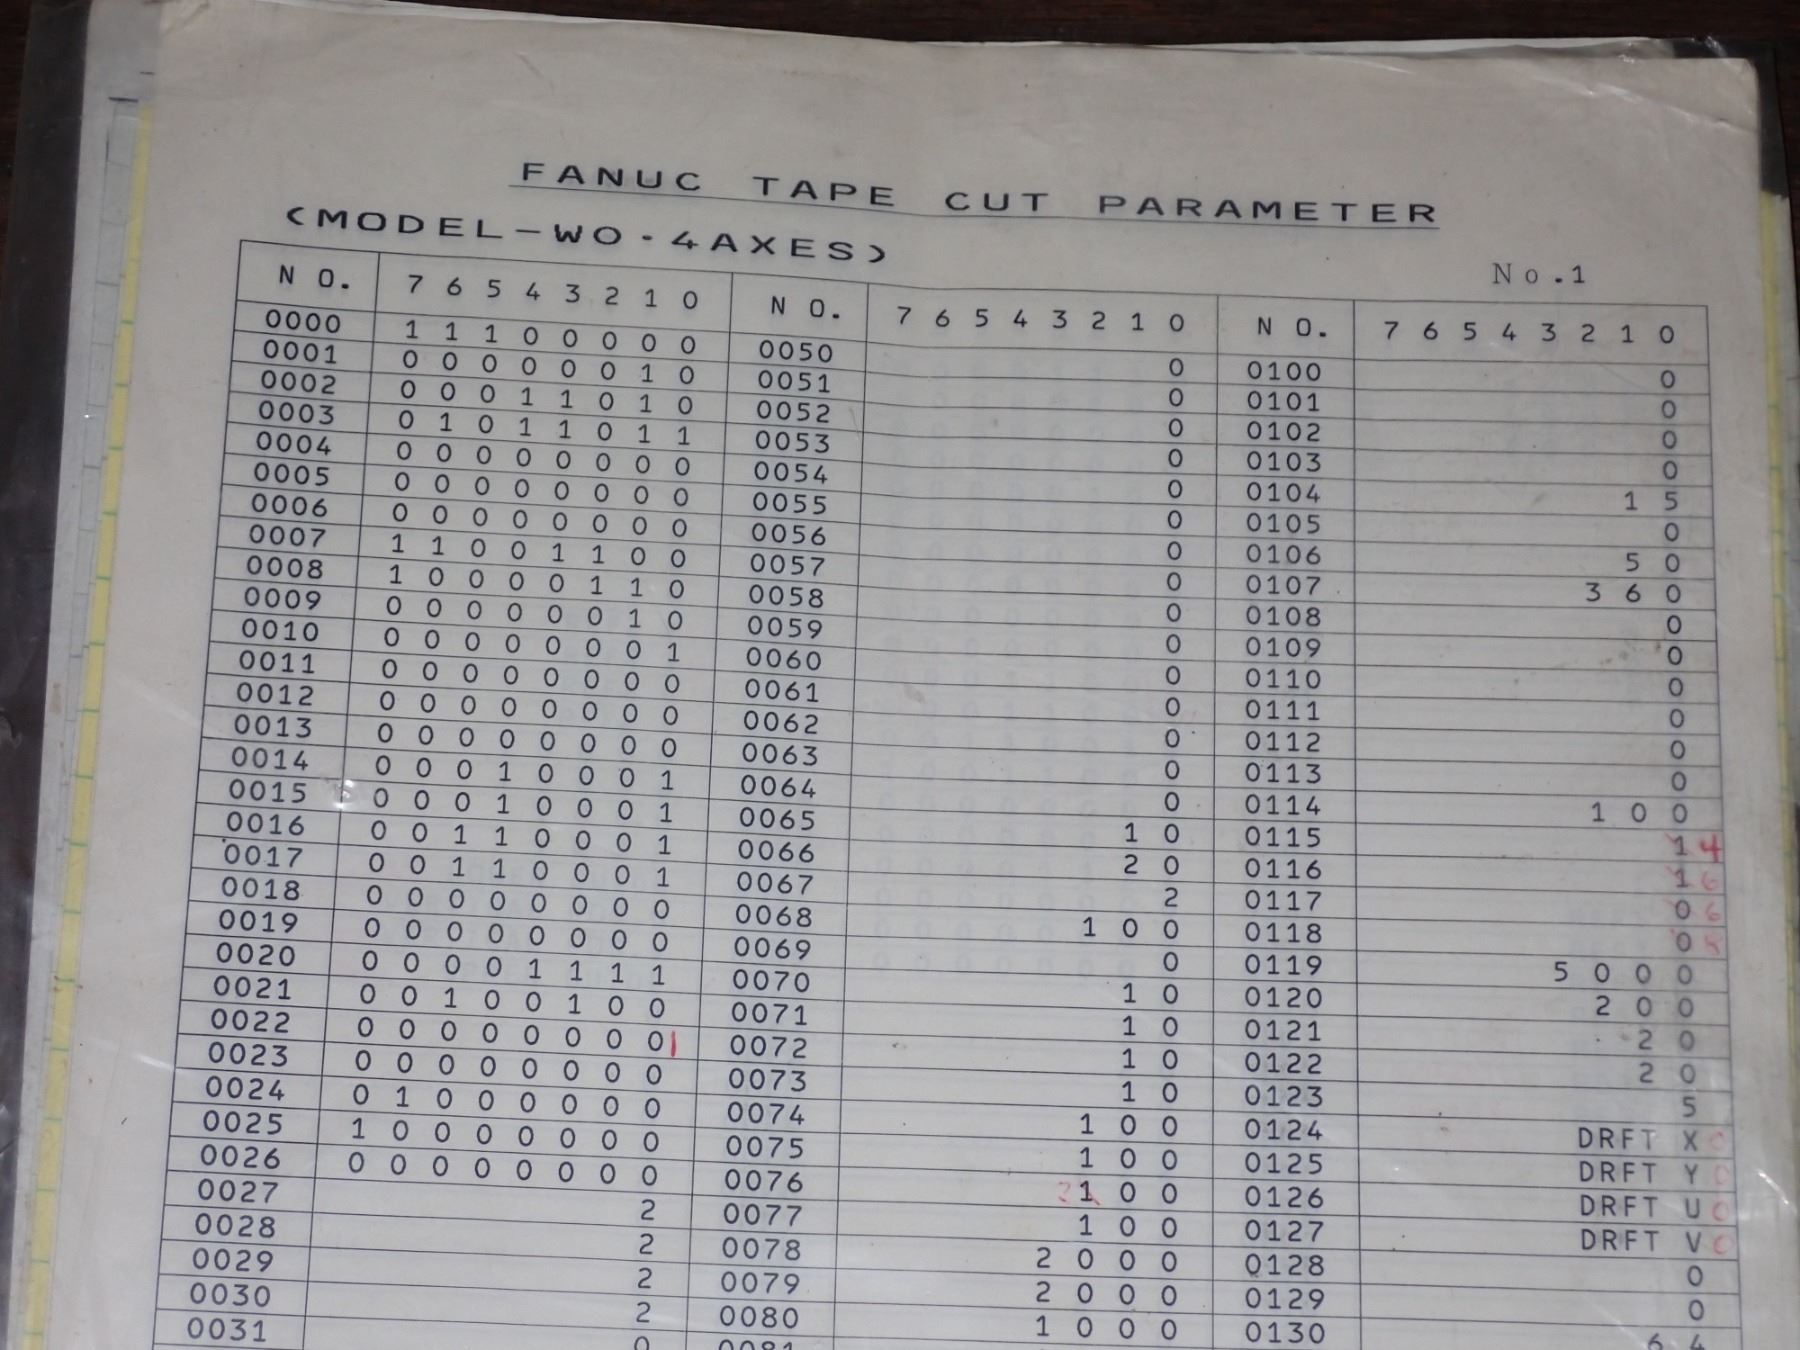 FANUC TAPE CUT PARAMETER
<MODEL-WO-4AXES>
No.1
NO. 7 6 5 4 3 2 1 0 NO. 7 6 5 4 3 2 1 0 NO. 7 6 5 4 3 2 1 0
0000 1 1 1 0 0 0 0 0 0050 0 0100 0
0001 0 0 0 0 0 0 1 0 0051 0 0101 0
0002 0 0 0 1 1 0 1 0 0052 0 0102 0
0003 0 1 0 1 1 0 1 1 0053 0 0103 0
0004 0 0 0 0 0 0 0 0 0054 0 0104 1 5
0005 0 0 0 0 0 0 0 0 0055 0 0105 0
0006 0 0 0 0 0 0 0 0 0056 0 0106 5 0
0007 1 1 0 0 1 1 0 0 0057 0 0107 3 6 0
0008 1 0 0 0 0 1 1 0 0058 0 0108 0
0009 0 0 0 0 0 0 1 0 0059 0 0109 0
0010 0 0 0 0 0 0 0 1 0060 0 0110 0
0011 0 0 0 0 0 0 0 0 0061 0 0111 0
0012 0 0 0 0 0 0 0 0 0062 0 0112 0
0013 0 0 0 0 0 0 0 0 0063 0 0113 0
0014 0 0 0 1 0 0 0 1 0064 0 0114 1 0 0
0015 0 0 0 1 0 0 0 1 0065 1 0 0115 1 4
0016 0 0 1 1 0 0 0 1 0066 2 0 0116 1 6
0017 0 0 1 1 0 0 0 1 0067 2 0117 0 6
0018 0 0 0 0 0 0 0 0 0068 1 0 0 0118 0
0019 0 0 0 0 0 0 0 0 0069 0 0119 5 0 0 0
0020 0 0 0 0 1 1 1 1 0070 1 0 0120 2 0 0
0021 0 0 1 0 0 1 0 0 0071 1 0 0121 2 0
0022 0 0 0 0 0 0 0 0 1 0072 1 0 0122 2 0
0023 0 0 0 0 0 0 0 0 0073 1 0 0123 5
0024 0 1 0 0 0 0 0 0 0074 1 0 0 0124 DRFT X 0
0025 1 0 0 0 0 0 0 0 0075 1 0 0 0125 DRFT Y 0
0026 0 0 0 0 0 0 0 0 0076 1 0 0 0126 DRFT U 0
0027 2 0077 1 0 0 0127 DRFT V 0
0028 2 0078 2 0 0 0 0128 0
0029 2 0079 2 0 0 0 0129 0
0030 2 0080 1 0 0 0 0130 6 4
0031 0 0081